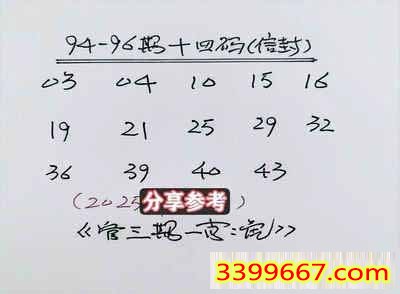 94-96期十四码(信封)
03 04 10 15 16
19 21 25 29 32
36 39 40 43
(2025 )
分享参考
《管三期一
3399667.com